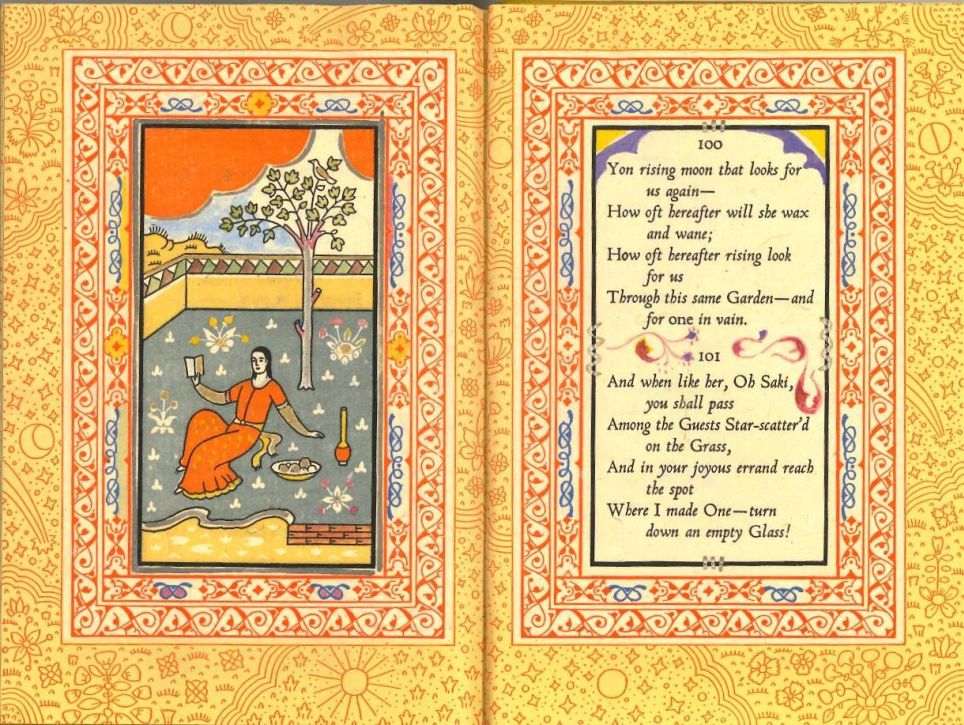 100
Yon rising moon that looks for
us again—
How oft hereafter will she wax
and wane;
How oft hereafter rising look
for us
Through this same Garden—and
for one in vain.
101
And when like her, Oh Saki,
you shall pass
Among the Guests Star-scatter'd
on the Grass,
And in your joyous errand reach
the spot
Where I made One—turn
down an empty Glass!